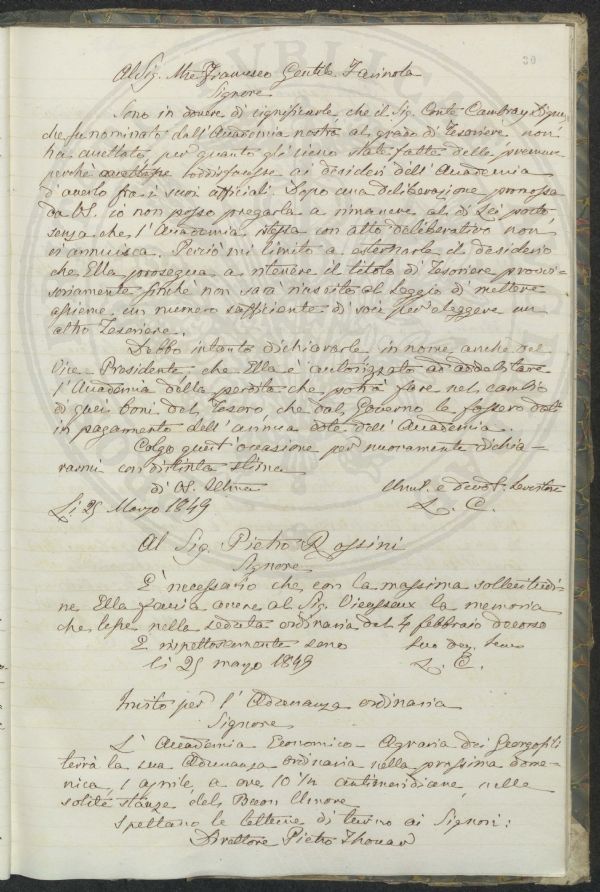 30
Al Sig. Mse Francesco Gentile Farinola
Signore
Sono in dovere di significarle che il Sig. Conte Cambray Digny
che fu nominato dall'Accademia nostra al grado di Tesoriere non
ha accettato per quanto gli sieno state fatte delle premure
perchè soddisfacesse ai desideri dell'Accademia
d'averlo fra i suoi officiali. Dopo una deliberazione promossa
da VS. io non posso pregarla a rimanere al di Lei posto,
senza che l'Accademia istessa con atto deliberativo non
vi annuisca. Perciò mi limito a esternarle il desiderio
che Ella prosegua a ritenere il titolo di Tesoriere provvi-
soriamente finchè non sarà riuscito al Seggio di mettere
assieme un numero sufficiente di soci per eleggere un
altro Tesoriere.
Debbo intanto dichiararle in nome anche del
Vice-Presidente che Ella è autorizzato ad addebitare
l'Accademia della perdita che potrà fare nel cambio
di quei boni del Tesoro, che dal Governo le fossero dati
in pagamento dell'annua dote dell'Accademia.
Colgo quest'occasione per nuovamente dichia-
rarmi con distinta stima
di VS. Illma
Umil. e devot. Servitore
Li 25 Marzo 1849
L. C.
Al Sig. Pietro Rossini
Signore
E' necessario che con la massima sollecitudi-
ne Ella faccia avere al Sig. Vieusseux la memoria
che lesse nella seduta ordinaria del 4 febbraio decorso
E rispettosamente sono
Suo dev. Servo
li 25 marzo 1849
L. C.
Invito per l'Adunanza ordinaria
Signore
L'Accademia Economico-Agraria dei Georgofili
terrà la sua Adunanza ordinaria nella prossima dome-
nica, 1 aprile, a ore 10 1/2 antimeridiane, nelle
solite stanze del Buon Umore
Spettano le letture di turno ai Signori:
Direttore Pietro Thouar